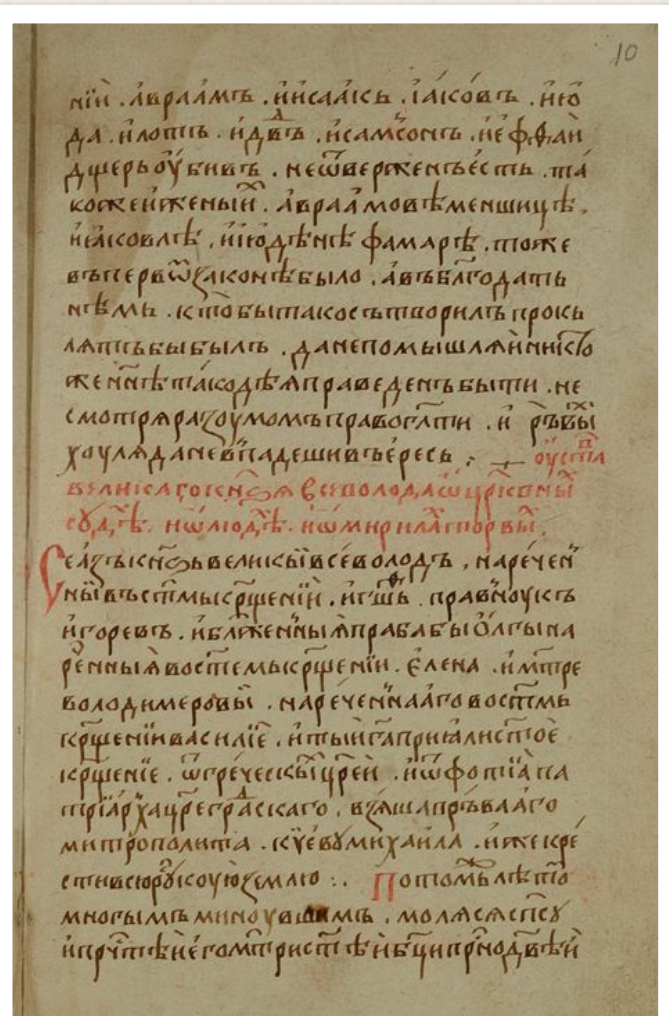 10
нїи . авраамъ . и исаакь . іаковъ . и ю
да . и лотъ . и дв҃дъ . и самсонъ . и еффаи
дщерь оубивъ . не ѿверженъ єсть . та
коже и женыи҆ . авраамовѣ меншицѣ .
и іаковлѣ . и июдѣнѣ фамарѣ . тоже
въ перв ѿ законѣ было . а въ блг҃одать
нѣмь . кто бы тако сътворилъ прокь
лятъ бы былъ . да не помышляи нисто
женнѣ тако дѣя праведенъ быти . не
смотря разоумомъ правогл҃ти . и
хоуля да не впадеши въ ересь . оустав
великаго кнз҃я всеволода ѿ црк҃овны
судѣ . и ѿ людѣ . и ѿ мирила торговы
Се азъ кнз҃ь великыи всеволодъ , наречен
ныи въ ст҃мь крщ҃ении . правноукъ
игоревъ . и блаженныя прабабы олгы на
ренныя во ст҃емь крщ҃ении . елена . и мт҃ре
володимеровы . нареченнааго во ст҃мь
крщ҃ении василїе . и тыи
крщ҃енїе . ѿ греческы црей . и ѿ фотїа па
трїарха цр҃еградскаго , взяша пръвааго
митрополита . кїеву михаила . иже кре
сти всю рускоую землю :. По томъ лѣто
многымъ миноувшимъ , моляся сп҃су
и прч҃тѣи его мт҃ри ст҃ѣи бц҃и приснодв҃ѣи